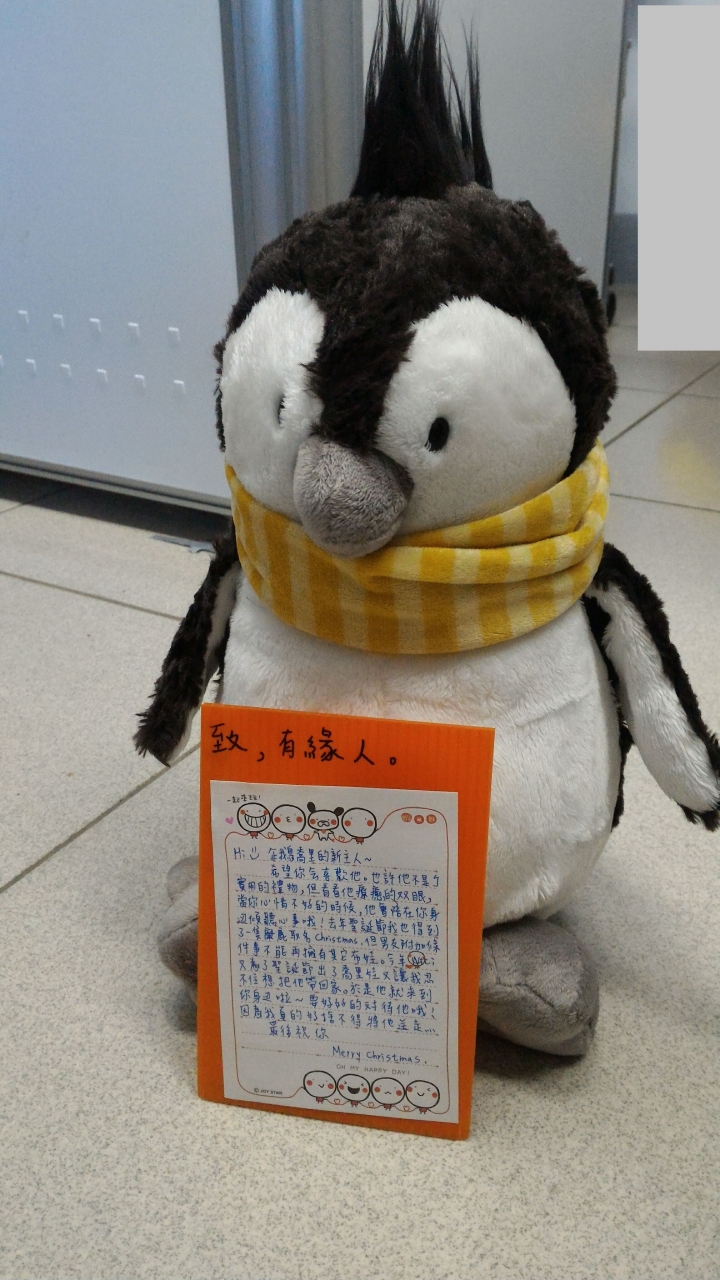 致,有緣人。
一起
Hi 企鵝喬里的新主人~
希望你会喜歡他。也許他不是个
實用的禮物,但看看他療癒的双眼,
當你心情不好的時候,他會陪在你身
边傾聽心事哦!去年聖誕節我也得到
了一隻麋鹿取名Christmas,但男友附加條
件事不能再擁有其它布娃。今年
又為了聖誕節出了喬里娃又讓我忍
不住想把他帶回家。於是他就来到
你身边啦~要好好的对待他哦!
因為我真的好捨不得將他送走...
最後祝你
Merry Christmas.
OH MY HAPPY DAY!
© JOY STAR